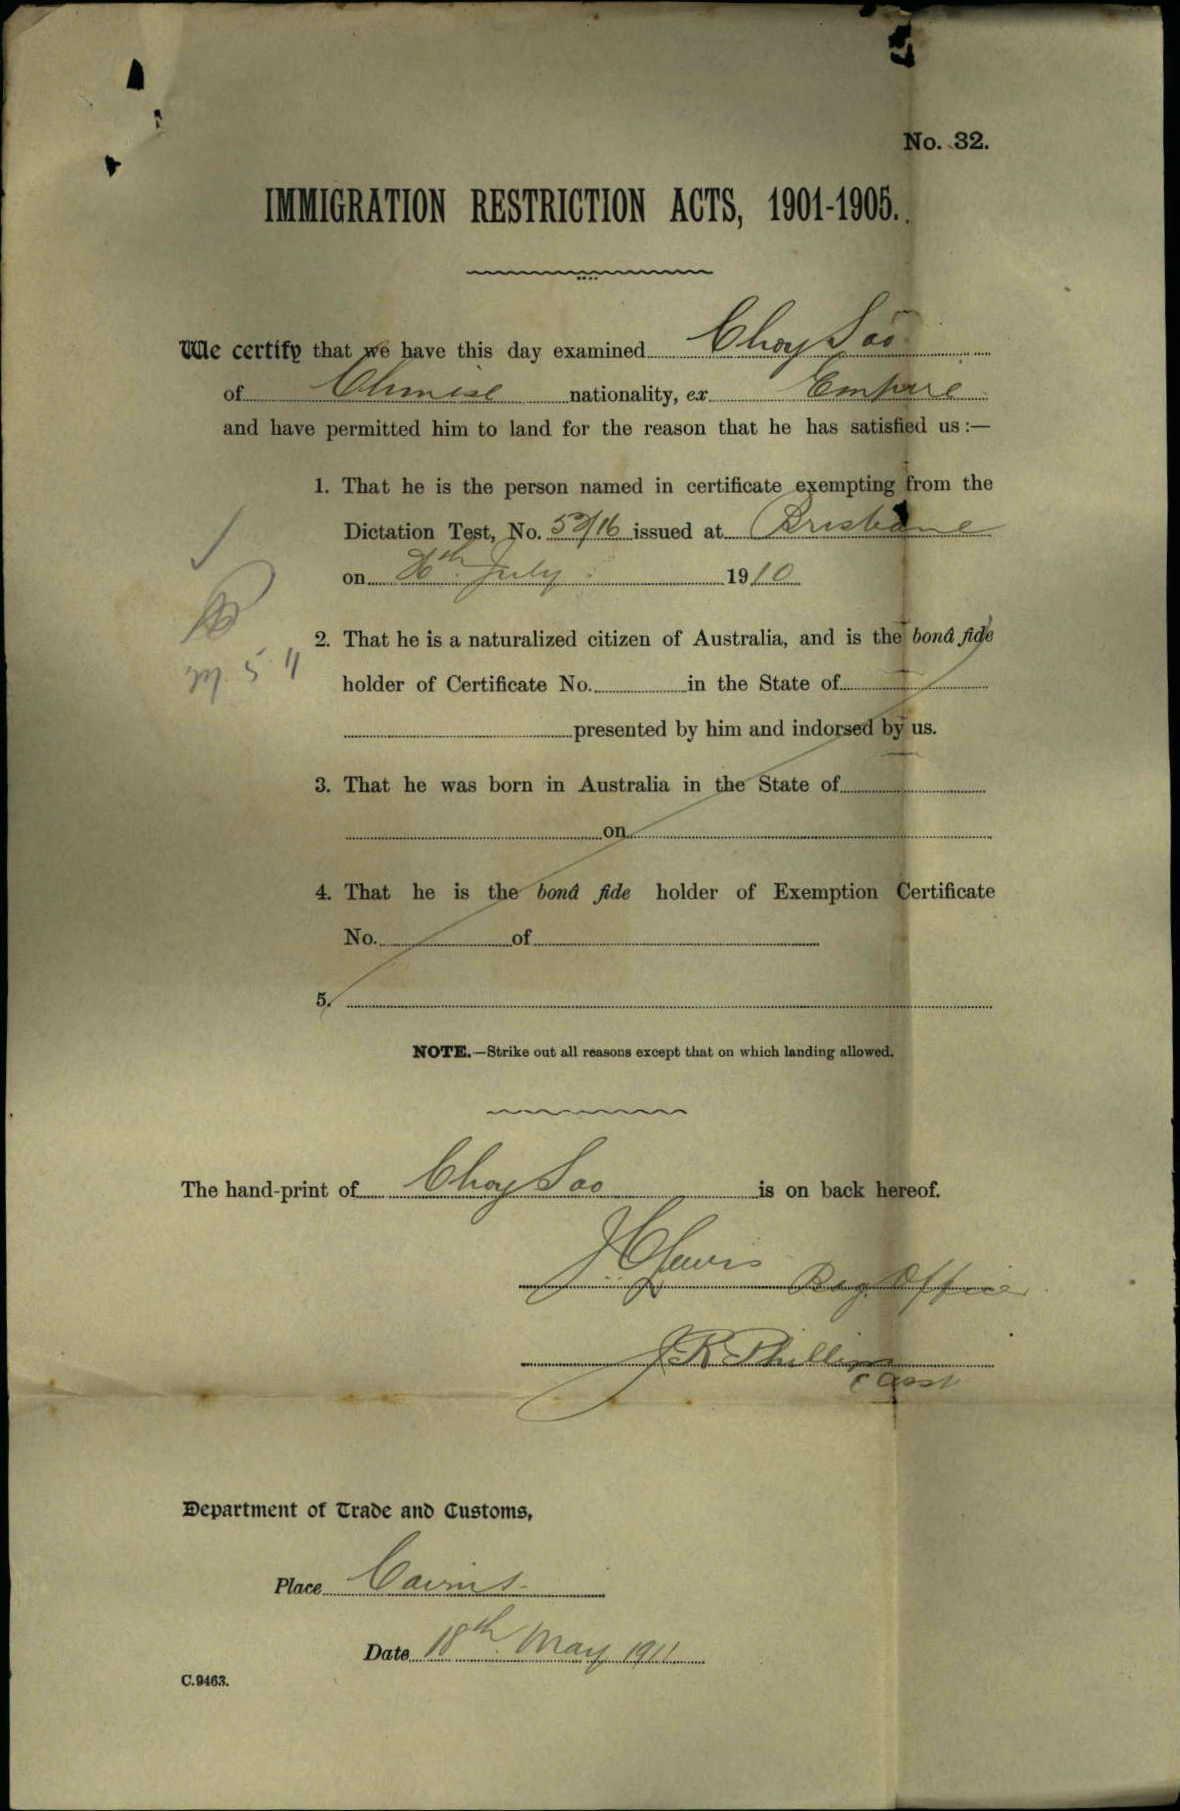 No. 32.
IMMIGRATION RESTRICTION ACTS, 1901-1905.
We certify that we have this day examined Choy Soo
of Chinese nationality, ex Empire
and have permitted him to land for the reason that he has satisfied us :—
1. That he is the person named in certificate exempting from the
Dictation Test, No. 53/16 issued at Brisbane
on July 1910
2. That he is a naturalized citizen of Australia, and is the bonâ fide
holder of Certificate No. in the State of
presented by him and indorsed by us.
3. That he was born in Australia in the State of
on
4. That he is the bonâ fide holder of Exemption Certificate
No. of
5.
NOTE.—Strike out all reasons except that on which landing allowed.
The hand-print of Choy Soo is on back hereof.
J C Lewis Officer
J. R. Phillips
Asst
Department of Trade and Customs,
Place Cairns
Date 18th May 1911
C.9463.